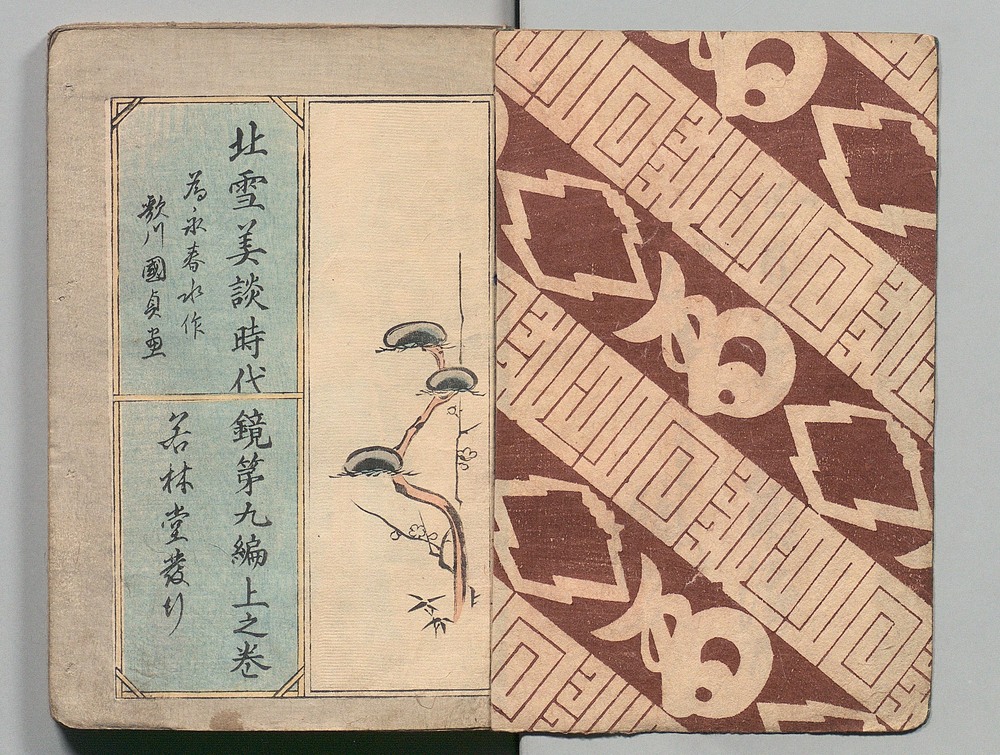 北雪美談時代鏡第九編上之巻
為永春水作
歌川國貞画
若林堂發行